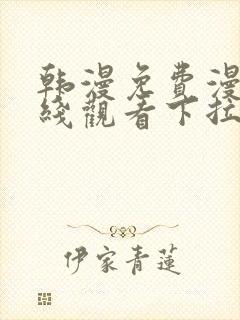 韩漫免費漫
綫觀看下拉
伊家青蓮